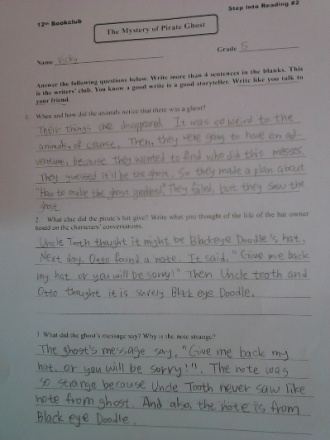 12th Bookclub
Step Into Reading #2
The Mystery of Pirate Ghost
Name Vicky
Grade 5
Answer the following questions below. Write more than 4 sentences in the blanks. This
is the writers' club. You know a good write is a good storyteller. Write like you talk to
your friend.
1. When and how did the animals notice that there was a ghost?
Their things are disappeared. It was so weird to the
animals, of course. Then, they were going to have an ad-
venture, because they wanted to find who did this messes.
They guessed it'll be the ghost. So they made a plan about
"How to make the ghost goodest" They failed, but they saw the
ghost
2. What clue did the pirate's hat give? Write what you thought of the life of the hat owner
based on the characters' conversations.
Uncle Tooth thought it might be Blackeye Doodle's hat.
Next day, Otto found a note. It said, "Give me back
my hat or you will be sorry!" Then Uncle tooth and
Otto thought it is surely Black eye Doodle.
3. What did the ghost's message say? Why is the note strange?
The ghost's message say, "Give me back my
hat, or you will be sorry!". The note was
so strange because Uncle Tooth never saw like
note from ghost. And also the note is from
Black eye Doodle.